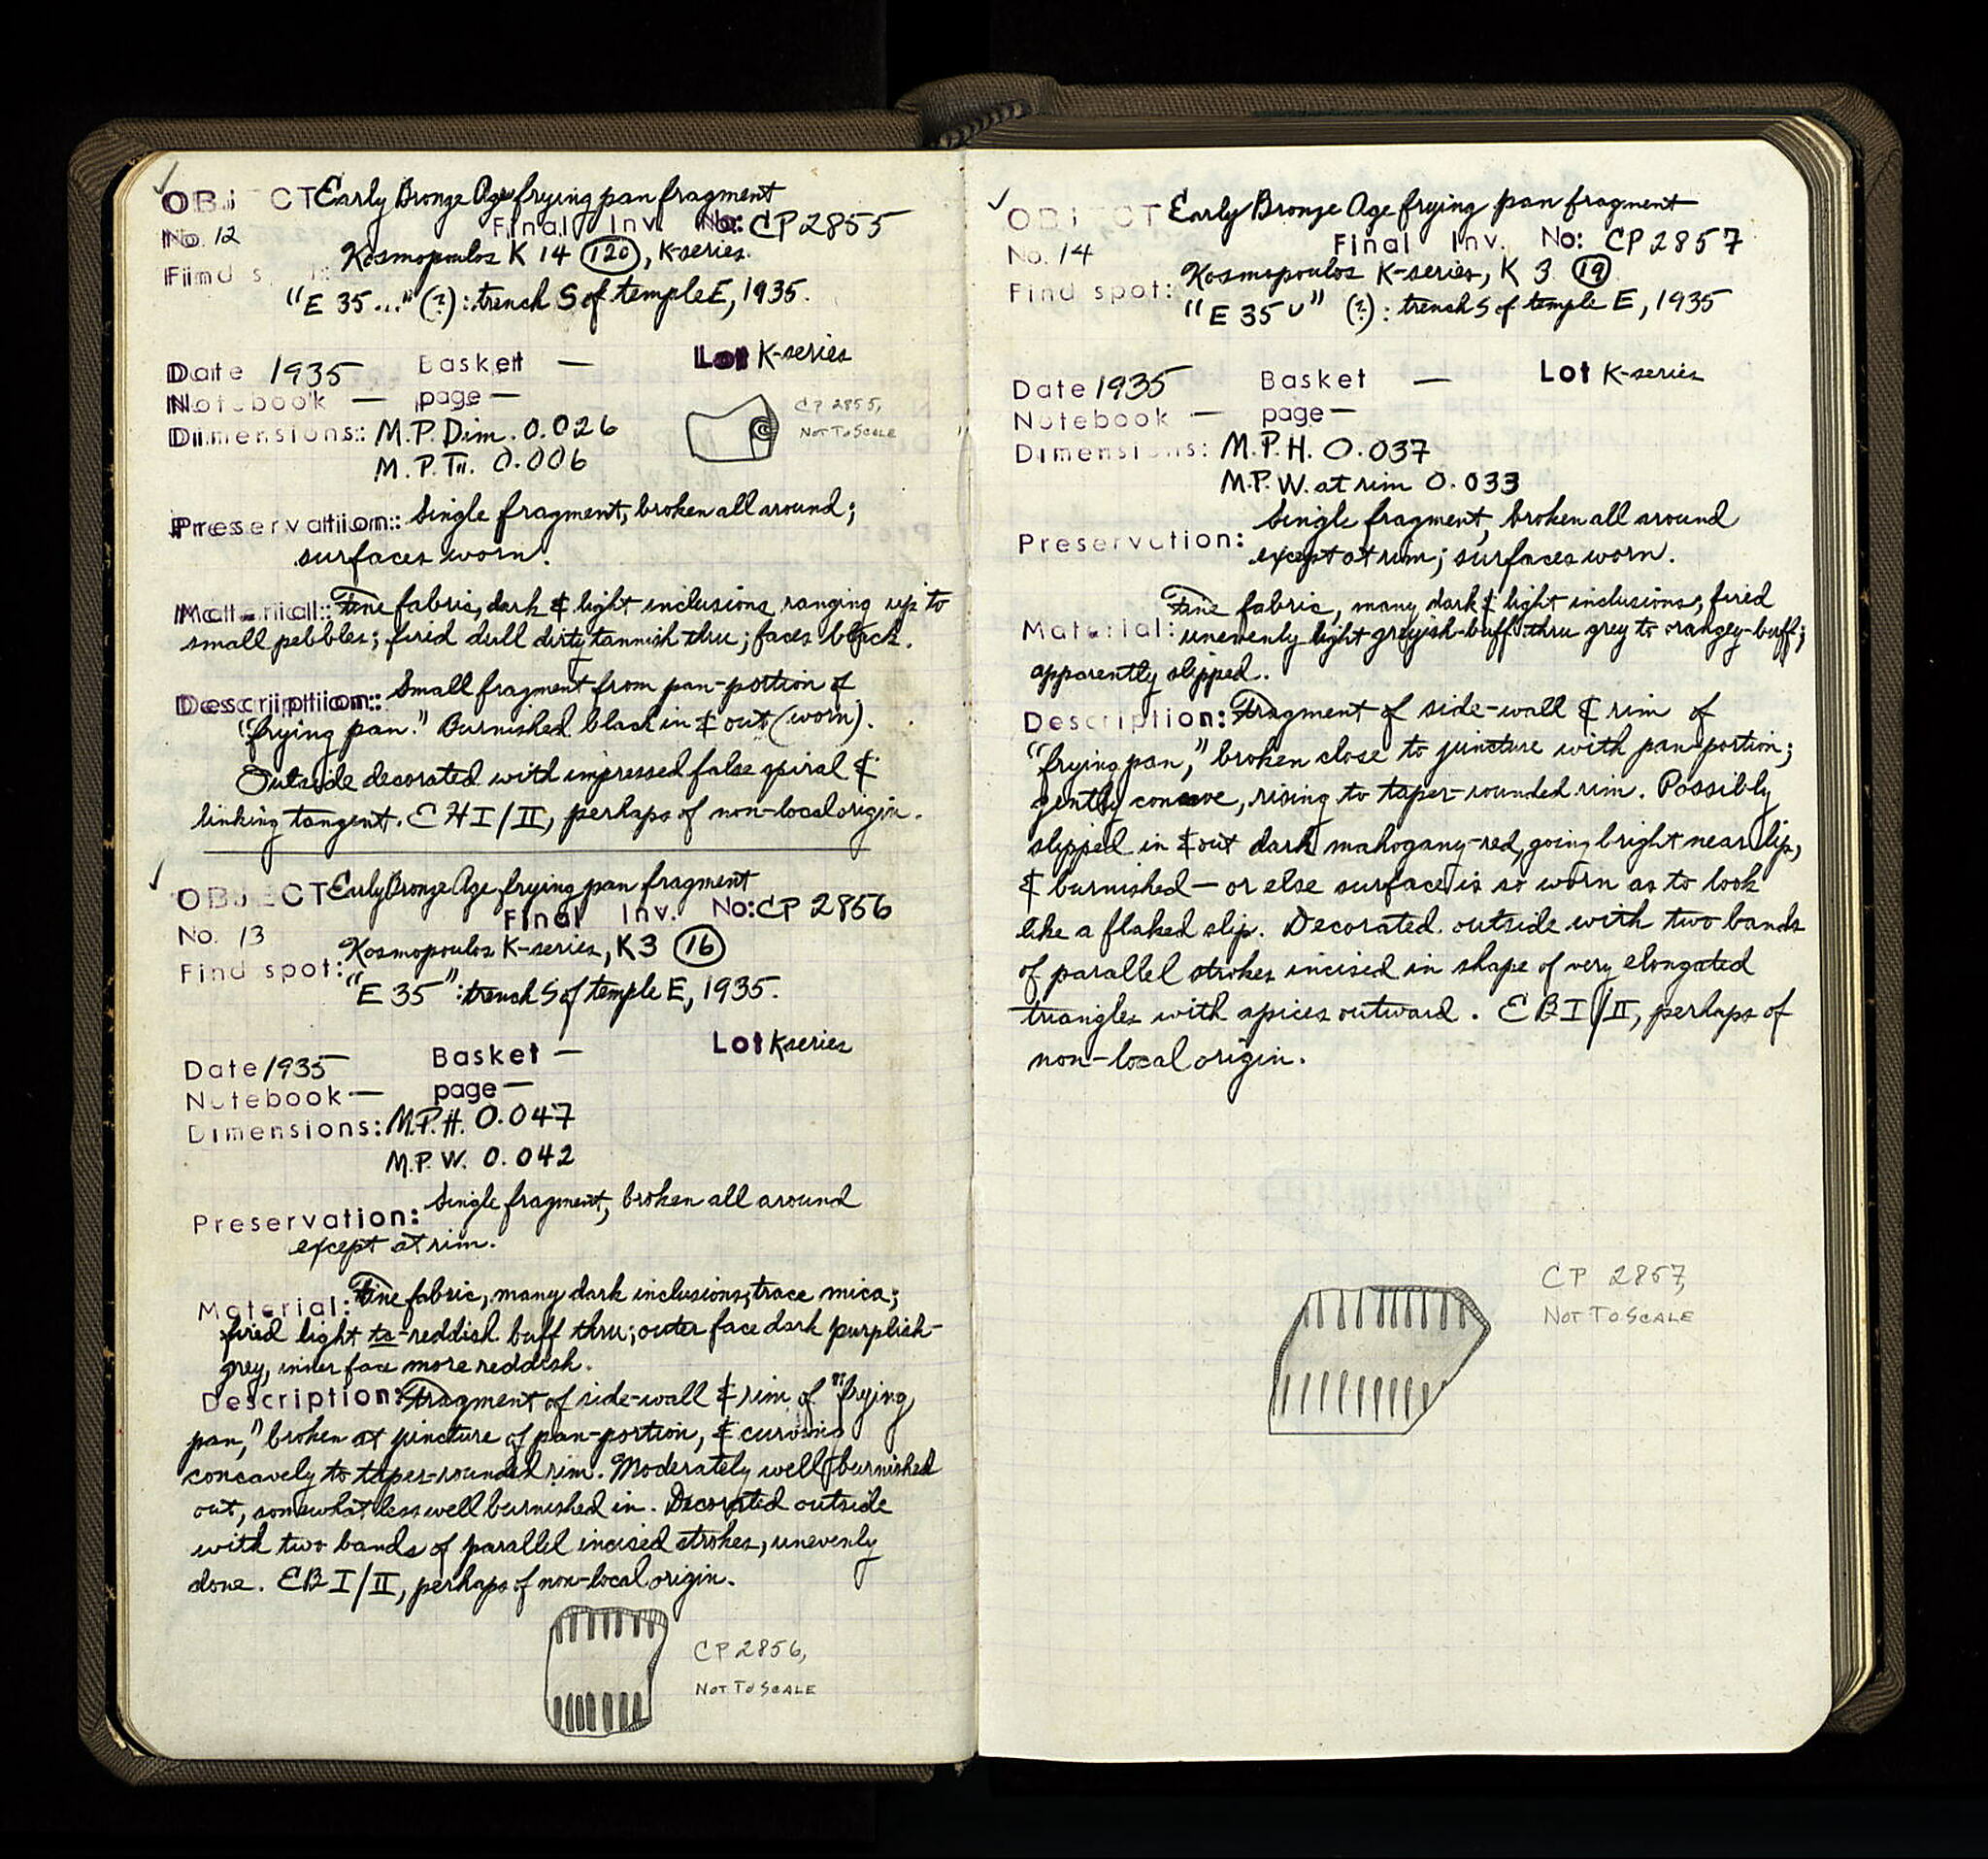 ✓
OBJECT Early Bronze Age frying pan fragment
Final Inv. No: CP 2855
No. 12
Kosmopoulos K 14 (120), K-series.
Find s
"E 35..." (?): trench S of temple E, 1935.
Date 1935 Basket — Lot K-series
Notebook — page —
Dimensions: M.P. Dim. 0.026
M.P. Th. 0.006
CP 2855,
NOT TO SCALE
Preservation: Single fragment, broken all around;
surfaces worn.
Material: Fine fabric, dark & light inclusions ranging up to
small pebbles; fired dull dirty tannish thru; faces black.
Description: Small fragment from pan-portion of
"frying pan." Burnished black in & out (worn).
Outside decorated with impressed false spiral &
linking tangent. EH I/II, perhaps of non-local origin.
✓
OBJECT Early Bronze Age frying pan fragment
Final Inv. No: CP 2856
No. 13
Kosmopoulos K-series, K3 (16)
Find spot:
"E 35": trench S of temple E, 1935.
Date 1935 Basket — Lot K series
Notebook — page —
Dimensions: M.P.H. 0.047
M.P.W. 0.042
Preservation: Single fragment, broken all around
except at rim.
Material: Fine fabric, many dark inclusions, trace mica;
fired light to-reddish buff thru; outer face dark purplish-
grey, inner face more reddish.
Description: Fragment of side-wall & rim of "frying
pan," broken at juncture of pan-portion, & curving
concavely to taper-rounded rim. Moderately well burnished
out, somewhat less well burnished in. Decorated outside
with two bands of parallel incised strokes, unevenly
done. EB I/II, perhaps of non-local origin.
CP 2856,
NOT TO SCALE
✓
OBJECT Early Bronze Age frying pan fragment
Final Inv. No: CP 2857
No. 14
Kosmopoulos K-series, K 3 (19)
Find spot:
"E 35 U" (?): trench S of temple E, 1935
Date 1935 Basket — Lot K-series
Notebook — page —
Dimensions: M.P.H. 0.037
M.P.W. at rim 0.033
Single fragment, broken all around
Preservation: except at rim; surfaces worn.
Fine fabric, many dark & light inclusions, fired
Material: unevenly light greyish-buff thru grey to orangey-buff;
apparently slipped.
Description: Fragment of side-wall & rim of
"frying pan," broken close to juncture with pan-portion;
gently concave, rising to taper-rounded rim. Possibly
slipped in & out dark mahogany-red, going bright near lip,
& burnished — or else surface is so worn as to look
like a flaked slip. Decorated outside with two bands
of parallel strokes incised in shape of very elongated
triangles with apices outward. EB I/II, perhaps of
non-local origin.
CP 2857,
NOT TO SCALE